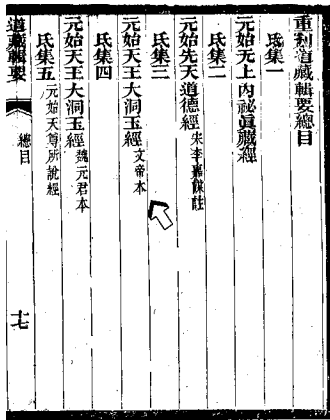 重刊道藏輯要總目
氐集一
元始元上內祕眞藏經
氐集二
元始先天道德經 宋李嘉謀註
氐集三
元始天王大洞玉經 文帝本
氐集四
元始天王大洞玉經 魏元君本
氐集五 元始天尊所說經
道藏輯要 總目 十七